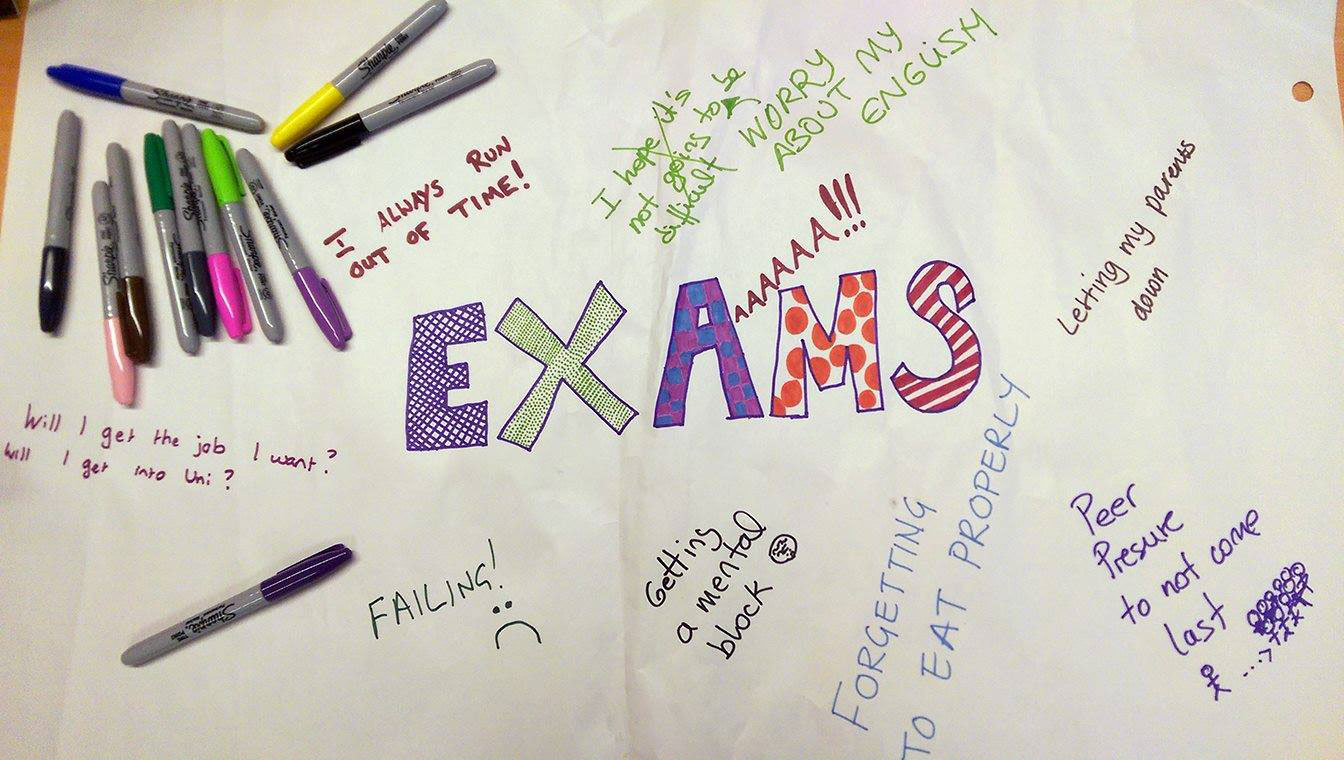 Sharpie
Sharpie
Sharpie
Sharpie
Sharpie
I ALWAYS RUN
OUT OF TIME!
I hope it's
not going to be
difficult
WORRY
ABOUT MY
ENGLISM
AAAAAA!!!
EXAMS
Letting my parents
down
Will I get the job I want?
Will I get into Uni?
FAILING!
Getting
a mental
block
FORGETTING
TO EAT PROPERLY
Peer
Presure
to not come
last
Sharpie